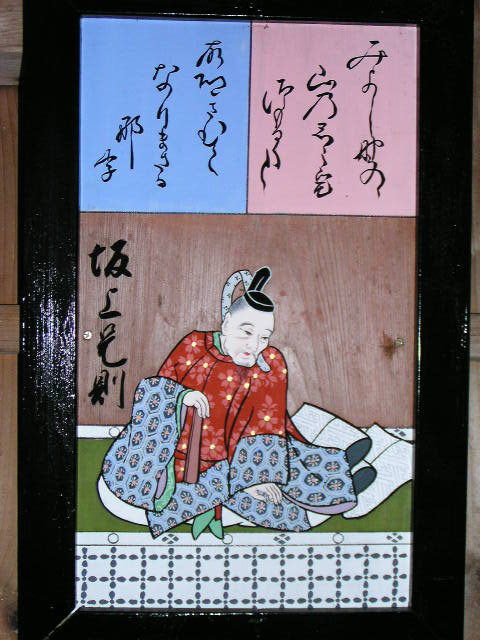 みよし野の
山乃しら雪
つもるらし
故郷さむく
なりまさる
那
坂上是則